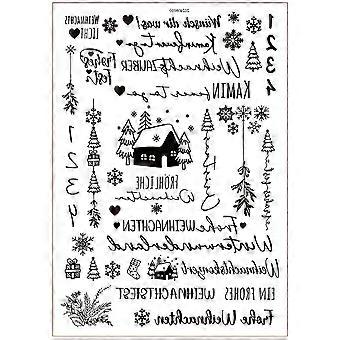 WEIHNACHTS
LICHT
Wünsch dir was!
1
2
3
4
Frohes
Fest
WeihnachtsZAUBER
KAMIN feuer to go
1
2
3
4
FRÖHLICHE
Weihnachten
Frohe WEIHNACHTEN
Winterwonderland
EIN FROHES WEIHNACHTSFEST
Frohe Weihnachten